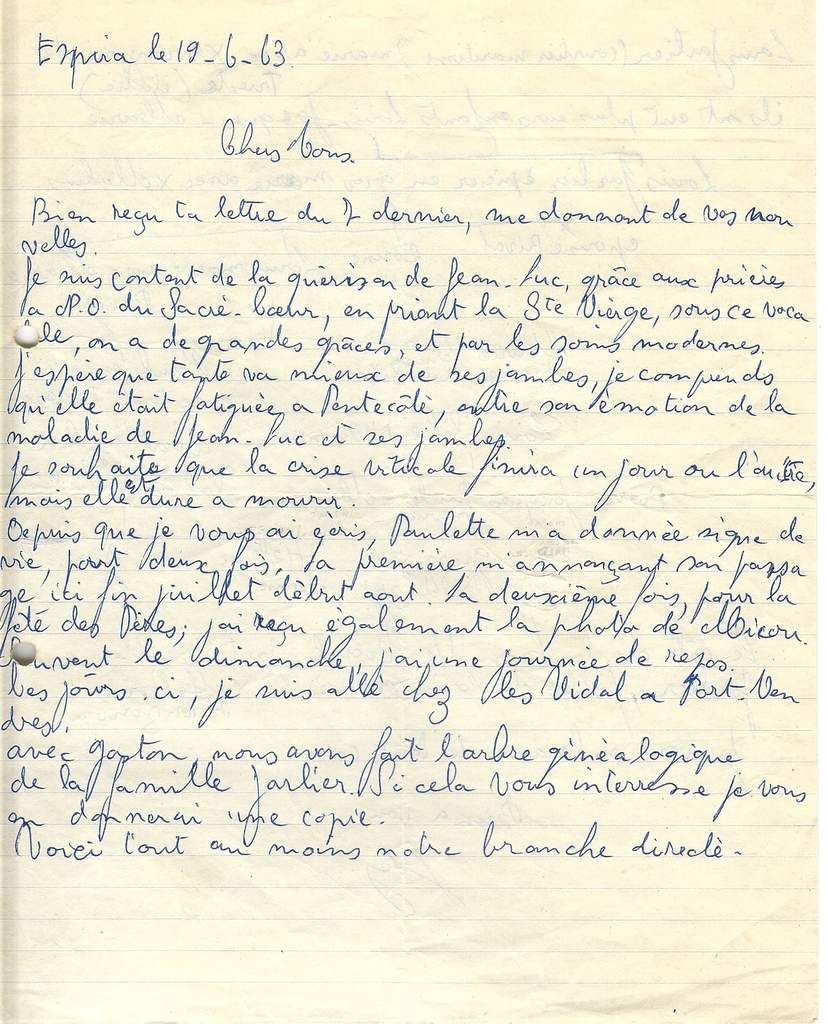 Espira le 19-6-63.
Chers Tous.
Bien reçu ta lettre du 7 dernier, me donnant de vos nou
velles.
Je suis content de la guèrison de Jean-Luc, grâce aux prières
a N.D. du Sacré-Cœur, en priant la Ste Vièrge, sous ce voca
ble, on a de grandes grâces, et par les soins modernes.
J'espère que tante va mieux de ses jambes, je comprends
qu'elle était fatiguée a Pentecôte, outre son émotion de la
maladie de Jean-Luc et ses jambes.
Je souhaite que la crise viticole finira un jour ou l'autre,
mais elle est dure a mourir.
Depuis que je vous ai écris, Paulette m'a donnée signe de
vie, pour deux fois, la première m'annonçant son passa
ge ici fin juillet début aout. La deuxième fois, pour la
fêté des Pères; j'ai reçu également la photo de
Souvent le dimanche, j'ai une journée de repos.
Ces jours-ci, je suis allé chez les Vidal a Port-Ven
dres.
avec Gaston, nous avons fait l'arbre génèalogique
de la famille Jarlier. Si cela vous interresse je vous
en donnerai une copie.
Voici tout au moins notre branche directè.